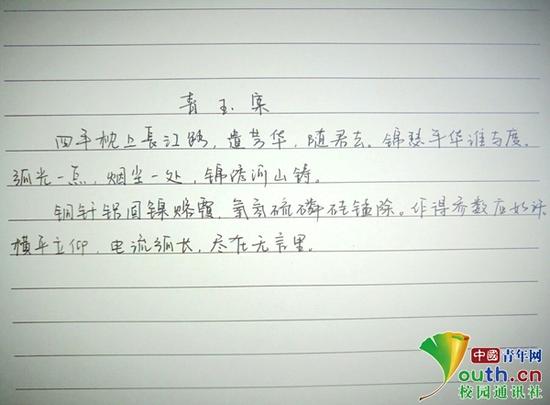 青玉案
四年枕上長江路，遣芳华，随君去。锦瑟年华谁与度，
弧光一点，烟尘一处，锦瑟河山铸。
铜钎铝固镍熔覆，氧氢硫磷硅锰除。作得参数应如许
横平立仰，电流弧长，尽在无言里。
中國青年网
youth.cn
校园通讯社